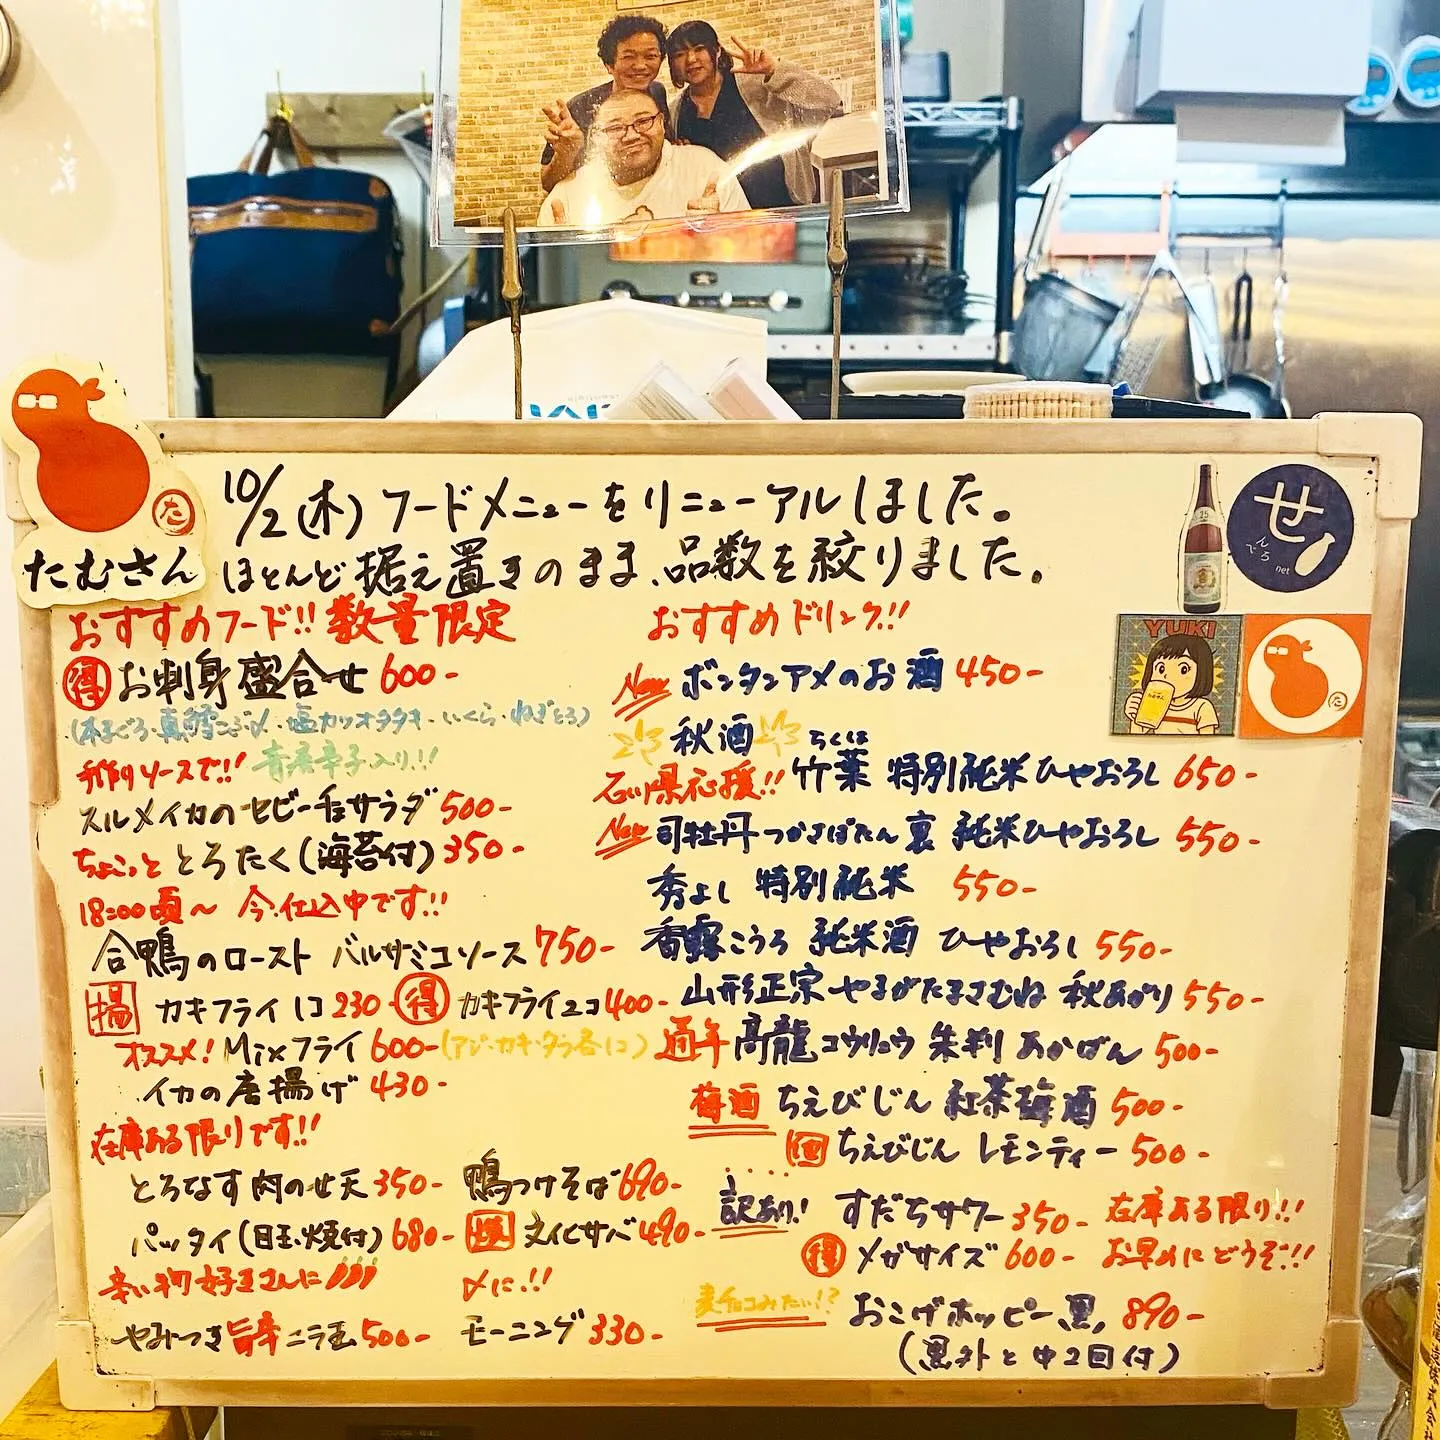 たむさん
た
10/2(木) フードメニューをリニューアルしました。
ほとんど据え置きのまま、品数を絞りました。
せ
でんろ
net
YUKI
た
おすすめフード!! 数量限定
得 お刺身盛合せ 600-
(本まぐろ・真鱈こぶ〆・塩カツオタタキ・いくら・ねぎとろ)
手作りソースで!! 青唐辛子入り!!
スルメイカのセビーチェサラダ 500-
ちょこっと とろたく(海苔付) 350-
18:00頃～ 今、仕込中です!!
合鴨のロースト バルサミコソース 750-
揚 カキフライ1コ 230- 得 カキフライ2コ 400-
オススメ! Mixフライ 600- (アジ・カキ・タラ各1コ)
イカの唐揚げ 430-
在庫ある限りです!!
とろなす肉のせ天 350- 鴨つけそば 690-
パッタイ(目玉焼付) 680- 文化サバ 490-
辛い物好きさんに 〆に!!
やみつき旨辛ニラ玉 500- モーニング 330-
おすすめドリンク!!
New ボンタンアメのお酒 450-
秋酒
石川県応援!! 竹葉 ちくは 特別純米ひやおろし 650-
New 司牡丹 つかさぼたん 裏 純米ひやおろし 550-
秀よし 特別純米 550-
香露 こうろ 純米酒 ひやおろし 550-
山形正宗 やまがたまさむね 秋あがり 550-
通年 高龍 コウリュウ 朱判 あかばん 500-
梅酒 ちえびじん 紅茶梅酒 500-
ちえびじん レモンティー 500-
訳あり! すだちサワー 350- 在庫ある限り!!
得 メガサイズ 600- お早めにどうぞ!!
麦チョコみたい!? おこげホッピー黒 890-
(黒外と中2回付)